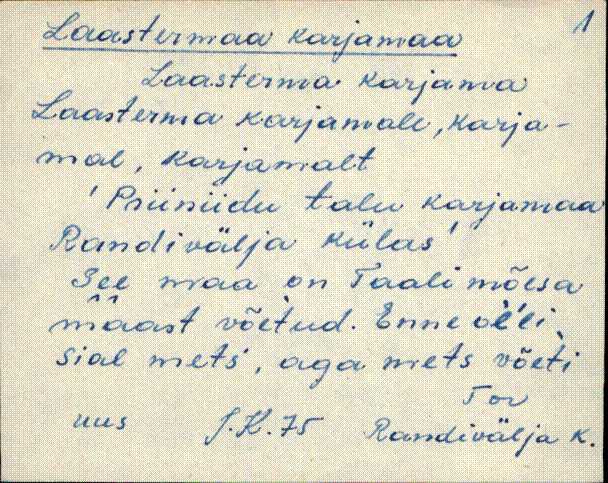 1
Laastermaa karjamaa
Laasterma karjama
Laasterma karjamale, karja-
mal, karjamalt
'Priiniidu talu karjamaa
Randivälja külas'
See maa on Taali mõesa
mââst võetud. Enne òl'li
sial mets, aga mets võeti
Tor
uus J.K. 75 Randivälja k.